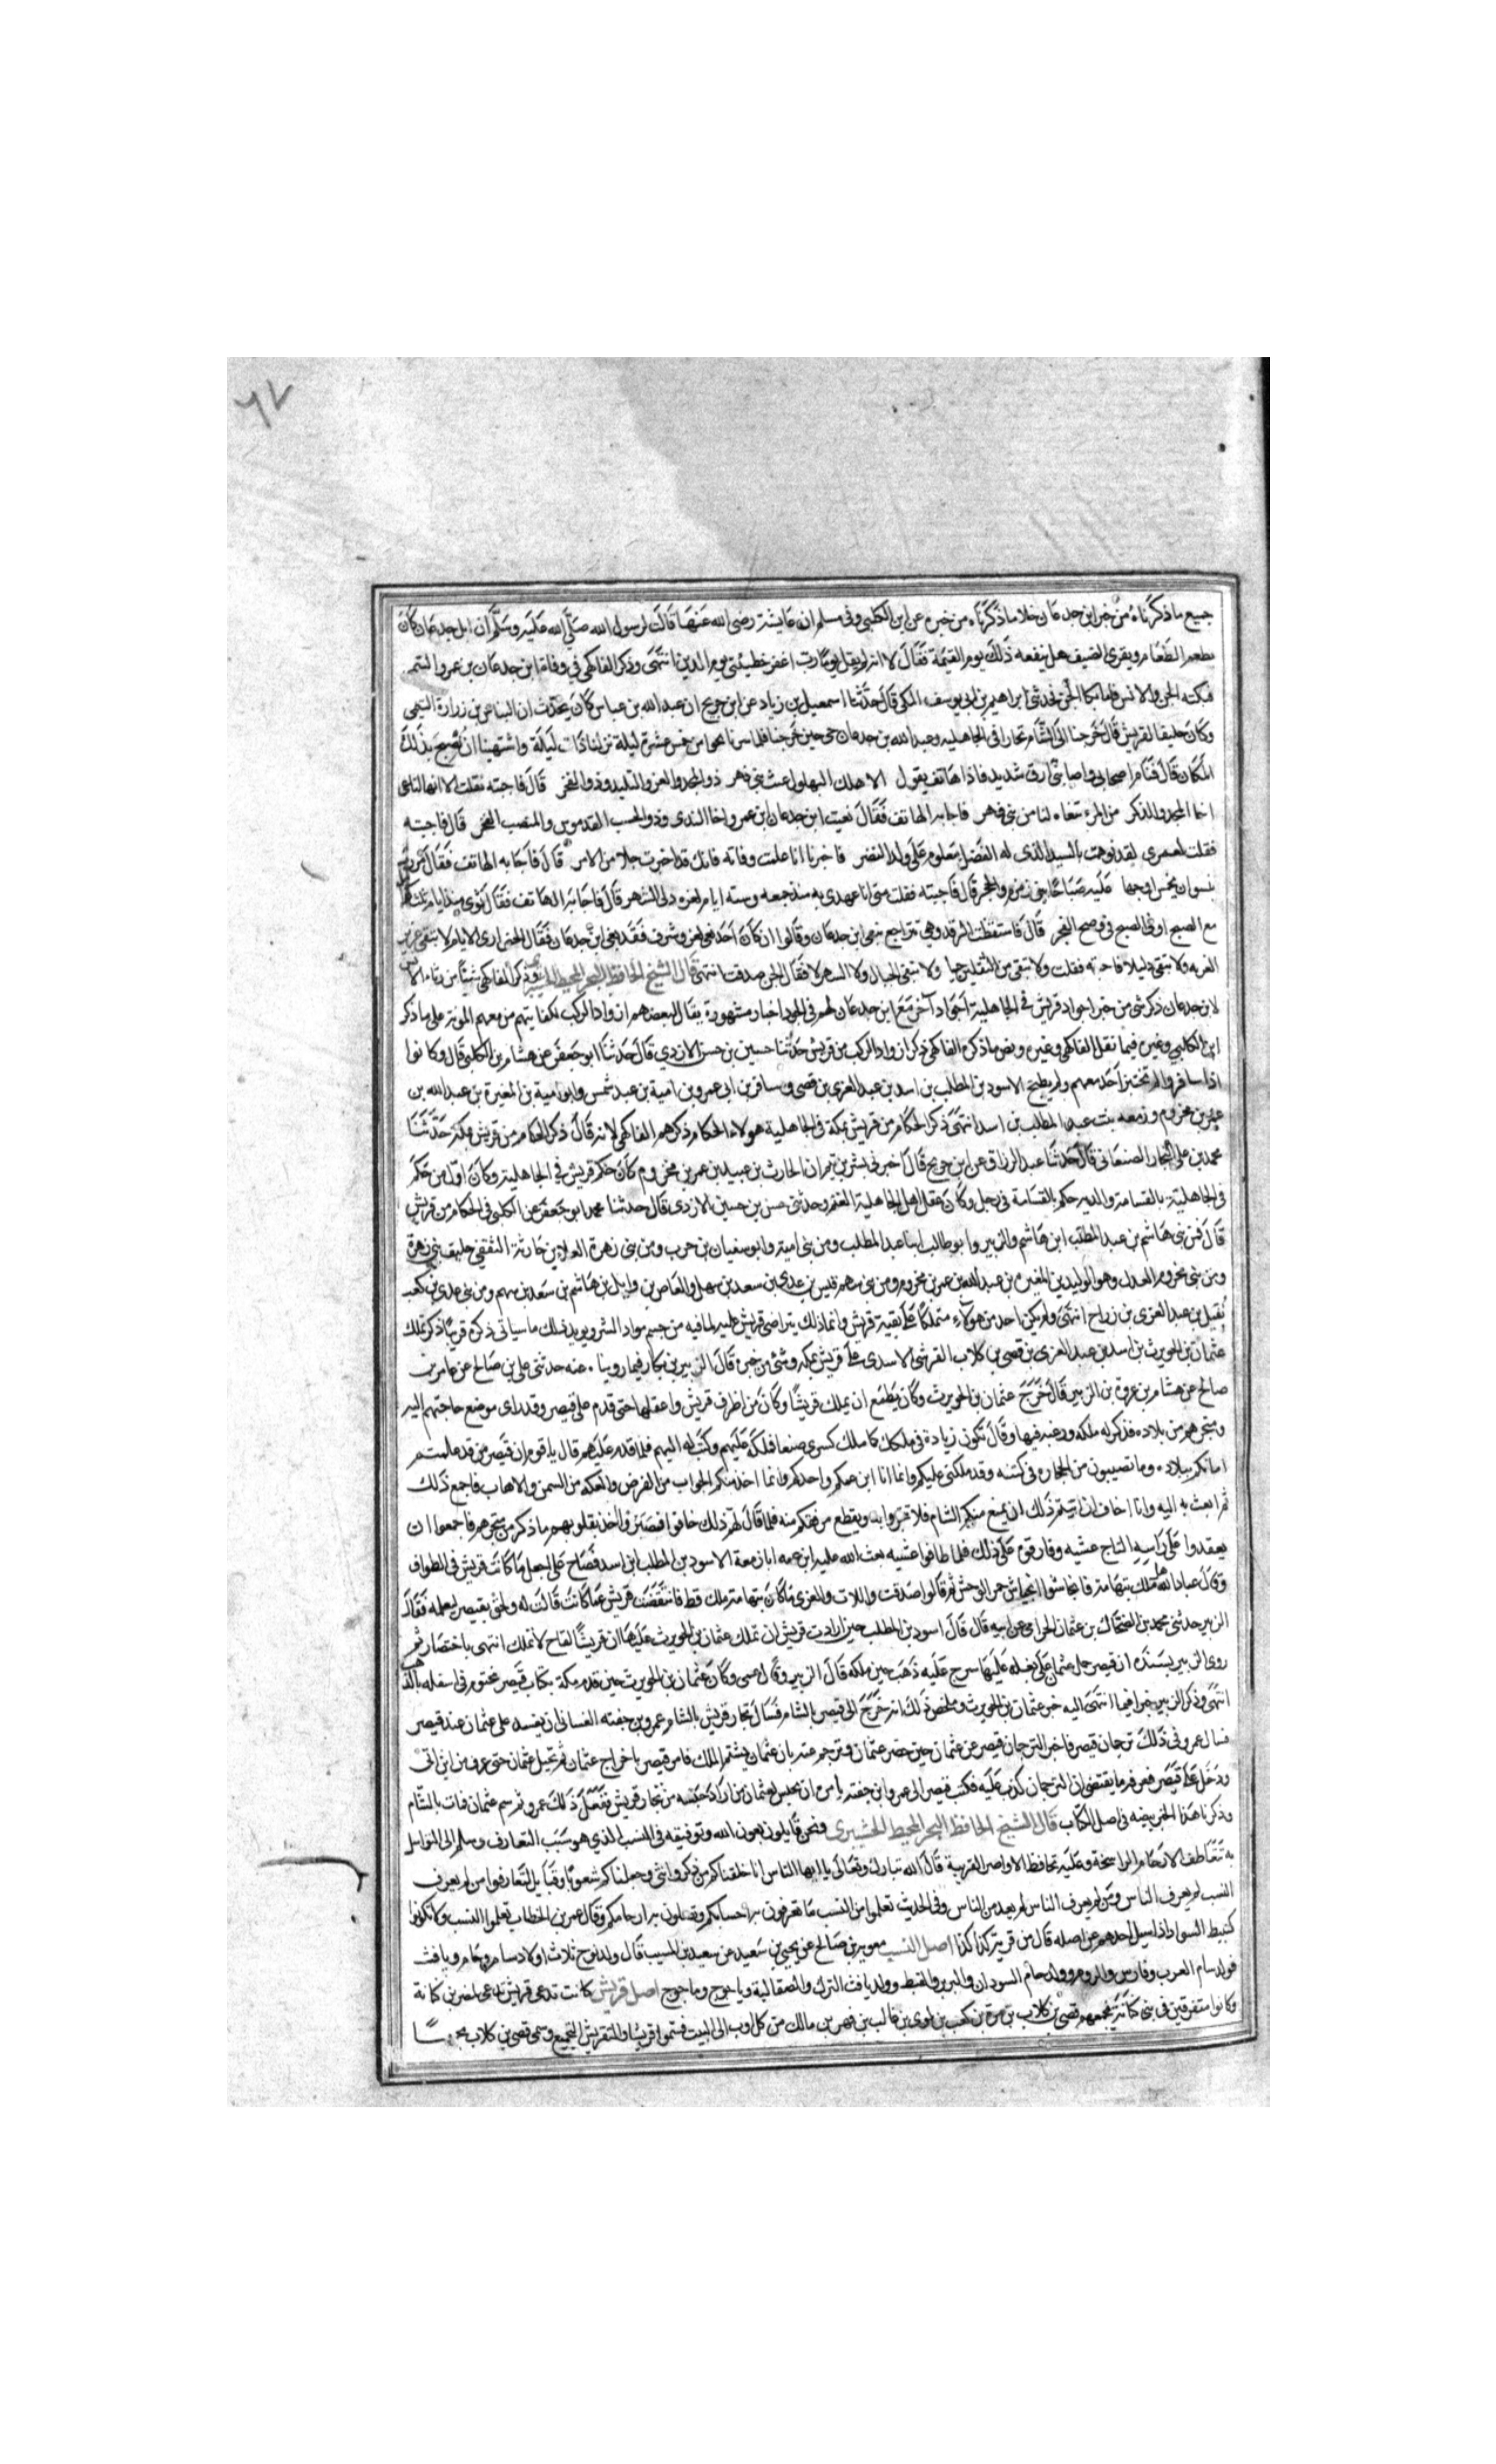 ٦٧
جميع ما ذكرناه من خبر ابن جدعان خلا ما ذكرناه من خبره عن ابن الكلبي وفي مسلم ان عايشة رضى الله عنها قالت لرسول الله صلى الله عليه وسلم ان ابن جدعان كان
يطعم الطعام ويقرى الضيف هل ينفعه ذلك يوم القيمة فقال لا انه لم يقل يوما رب اغفر خطيئتي يوم الدين انتهى وذكر الفاكهى في وفاة ابن جدعان بن عمرو التيمى
فبكته الجن والانس فاما بكا الجن فحدثني ابراهيم بن ابي يوسف المكى قال حدثنا اسمعيل بن زياد عن ابن جريج ان عبد الله بن عباس كان يحدث ان النباش بن زرارة التيمى
وكان حليفا لقريش قال خرجنا الى الشام تجارا فى الجاهلية وعبد الله بن جدعان حى حين خرجنا فلما سرنا نحوا من خمس عشرة ليلة نزلنا ذات ليلة واشتهينا ان نصبح بذلك
المكان قال فنام اصحابى واصابنى ارق شديد فاذا هاتف يقول الا هلك البهلول غيث بنى فهر ذو المجد والعز والتليد وذو الفخر قال فاجبته فقلت الا ايها الناعى
اخا المجد والذكر من المرء تنعاه لنا من بنى فهر فاجابه الهاتف فقال نعيت ابن جدعان ابن عمرو اخا الندى وذو الحسب القدموس والمنصب الفخر قال فاجبته
فقلت لعمرى لقد نوهت بالسيد الذى له الفضل معلوم على ولد النضر فاخبرنا انا علمت وفاته فانك قد اخبرت جلا من الامر قال فاجابه الهاتف فقال مررت
بنسوان يخمشن اوجها عليه صباحا بين زمزم والحجر قال فاجبته فقلت متى انا عهدى به منذ جمعه وسته ايام لغره ذلى الشهر قال فاجابه الهاتف فقال ثوى منذ ايام ثلاث كوامل
مع الصبح او فى الصبح في وضح الفجر قال فاستفظت الرقد وهى تتراجع بنعى ابن جدعان وقالوا ان كان احد نعى لعز وشرف فقد نعى ابن جدعان فقال الجن ارى الايام لا تبقى عزيز
لعزته ولا تبقى ذليلا فاجبته فقلت ولا تبقى من الثقلين حيا ولا تبقى الجبال ولا السهولا فقال الجن صدقت انتهى قال الشيخ الحافظ البحر المحيط وذكر الفاكهى شيئا من رثاء الانس
لابن جدعان ذكر شى من خبر اجواد قريش فى الجاهلية اجواد آخر مع ابن جدعان لهم في الجود اخبار مشهورة يقال لبعضهم ازواد الركب لكفايتهم من معهم المونة على ما ذكر
ابن الكلبي وغيره فيما نقل الفاكهى وغيره ونص ما ذكره الفاكهى ذكر ازواد الركب من قريش حدثنا حسين بن حسن الازدي قال حدثنا ابو جعفر عن هشام بن الكلبى قال وكانوا
اذا سافروا لم تختبز احد معهم ولم يطبخ الاسود بن المطلب بن اسد بن عبد العزى بن قصى ومسافر بن ابى عمرو بن امية بن عبد شمس وابو امية بن المغيرة بن عبد الله بن
عمر بن مخزوم وزمعه بن عبد المطلب بن اسد انتهى ذكر الحكام من قريش بمكة فى الجاهلية هولاء الحكام ذكرهم الفاكهى لانه قال ذكر الحكام من قريش بمكة حدثنا
محمد بن على النجار الصنعانى قال حدثنا عبد الرزاق عن ابن جريج قال اخبرنى بشر بن تيم ان الحارث بن عبيد بن عمر بن مخزوم كان حكم قريش فى الجاهلية وكان اول من حكم
فى الجاهلية بالقسامة والديه حكم بالقسامة فى رجل وكان عقل اهل الجاهلية الغنم وحدثنى حسن بن حسين الازدى قال حدثنا محمد ابو جعفر عن الكلبى فى الحكام من قريش
قال فمن بنى هاشم بن عبد المطلب ابن هاشم والزبير وابو طالب ابنا عبد المطلب ومن بنى امية وابو سفيان بن حرب ومن بنى زهرة العلا بن حارثة الثقفى حليف بنى زهرة
ومن بنى مخزوم العدل وهو الوليد بن المغيرة بن عبد الله بن عمر بن مخزوم ومن بنى سهم قيس بن عدى بن سعد بن سهل والعاص بن وايل بن هاشم بن سعد بن سهم ومن بنى عدى بن كعب
نفيل بن عبد العزى بن رزاح انتهى ولم يكن احد من هولاء متملكا على بقية قريش وانما ذلك بتراضى قريش عليه لما فيه من حسم مواد الشر ويويد ذلك ما سياتى ذكره قريبا ذكر تملك
عثمان بن الحويرث بن اسد بن عبد العزى بن قصى بن كلاب القرشى الاسدى على قريش بمكه وشئ من خبره قال الزبير بن بكار فيما روينا عنه حدثنى على بن صالح عن عامر بن
صالح عن هشام بن عروة بن الزبير قال خرج عثمان بن الحويرث وكان يطمع ان يملك قريشا وكان من اظرف قريش واعقلها حتى قدم على قيصر وقد راى موضع حاجتهم اليه
ومتجرهم من بلاده فذكر له ملكه ورغبه فيها وقال تكون زيادة فى ملكك كما ملك كسرى صنعا فملكه عليهم وكتب له اليهم فلما قدم عليهم قال يا قوم ان قيصر من قد علمتم
امانكم ببلاده وما تصيبون من التجاره فى كنفه وقد ملكنى عليكم وانما انا ابن عمكم واحدكم وانما اخذ منكم الجراب من القرض والعكه من السمن والاهاب فاجمع ذلك
ثم ابعث به اليه وانا اخاف ان ابيتم ذلك ان يمنع منكم الشام فلا تتجروا به ويقطع مرفقكم منه فلما قال لهم ذلك خافوا قيصر واخذ بقلوبهم ما ذكر من متجرهم فاجمعوا ان
يعقدوا على راسه التاج عشيه وفارقوه على ذلك فلما طافوا عشيه بعث الله عليه ابن عمه ابا زمعة الاسود بن المطلب ابن اسد فصاح على اجمل ما كانت قريش فى الطواف
وقال عباد الله ملك بتهامة فانحاشوا انحياش حمر الوحش ثم قالوا صدقت واللات والعزى ما كان بتهامة ملك قط فانتقضت قريش عما كانت قالت له ولحق بقيصر ليعلمه فقال
الزبير حدثنى محمد بن الضحاك بن عثمان الحزامى عن ابيه قال قال اسود بن المطلب حين ارادت قريش ان تملك عثمان بن الحويرث عليها ان قريشا لقاح لا تملك انتهى باختصار ثم
روى الزبير بسنده ان قيصر حمل عثمان على بغله عليها سرج عليه ذهب حين ملكه قال الزبير وقال عمى وكان عثمان بن الحويرث حين قدم مكة بكتاب قيصر مختوم فى اسفله بالذهب
انتهى وذكر الزبير خبرا فيما انتهى اليه خبر عثمان بن الحويرث وملخص ذلك انه خرج الى قيصر بالشام فسال تجار قريش بالشام عمرو بن جفنه الغسانى ان يفسد على عثمان عند قيصر
فسال عمرو فى ذلك ترجمان قيصر فاخبر الترجمان قيصر عن عثمان حين حضر عثمان وترجم عنه بان عثمان يشتم الملك فامر قيصر باخراج عثمان ثم تحيل عثمان حتى عرف من اين اتى
ودخل على قيصر فعرفه ما يقتضى ان الترجمان كذب عليه فكتب قيصر الى عمرو ابن جفنه يامره ان يحبس لعثمان من اراد حبسه من تجار قريش ففعل ذلك عمرو ثم سم عثمان فمات بالشام
وذكرنا هذا الخبر بنصه فى اصل الكتاب قال الشيخ الحافظ البحر المحيط الحشيبرى ونحن قايلون بعون الله وتوفيقه فى النسب الذي هو سبب التعارف وسلم الى التواصل
به تتعاطف الارحام الراسخة وعليه تحافظ الاواصر القريبة قال الله تبارك وتعالى يا ايها الناس انا خلقناكم من ذكر وانثى وجعلناكم شعوبا وقبايل لتعارفوا من لم يعرف
النسب لم يعرف الناس ومن لم يعرف الناس لم يعد من الناس وفى الحديث تعلموا من النسب ما تعرفون به احسابكم وتصلون به ارحامكم وقال عمر بن الخطاب تعلموا النسب ولا تكونوا
كنبيط السواد اذا سيل احدهم عن اصله قال من قرية كذا كذا اصل النسب معوية بن صالح عن يحيى بن سعيد عن سعيد بن المسيب قال ولد نوح ثلاث اولاد سام وحام ويافث
فولد سام العرب وفارس والروم وولد حام السودان والبربر والقبط وولد يافث الترك والصقالبة وياجوج وماجوج اصل قريش كانت تدعى قريش تدعى لنضر بن كنانة
وكانوا متفرقين فى بنى كنانة فجمعهم قصى بن كلاب بن مرة بن كعب بن لوى بن غالب بن فهر بن مالك من كل اوب الى البيت فسموا قريشا والتقريش التجميع وسمى قصى بن كلاب مجمعا